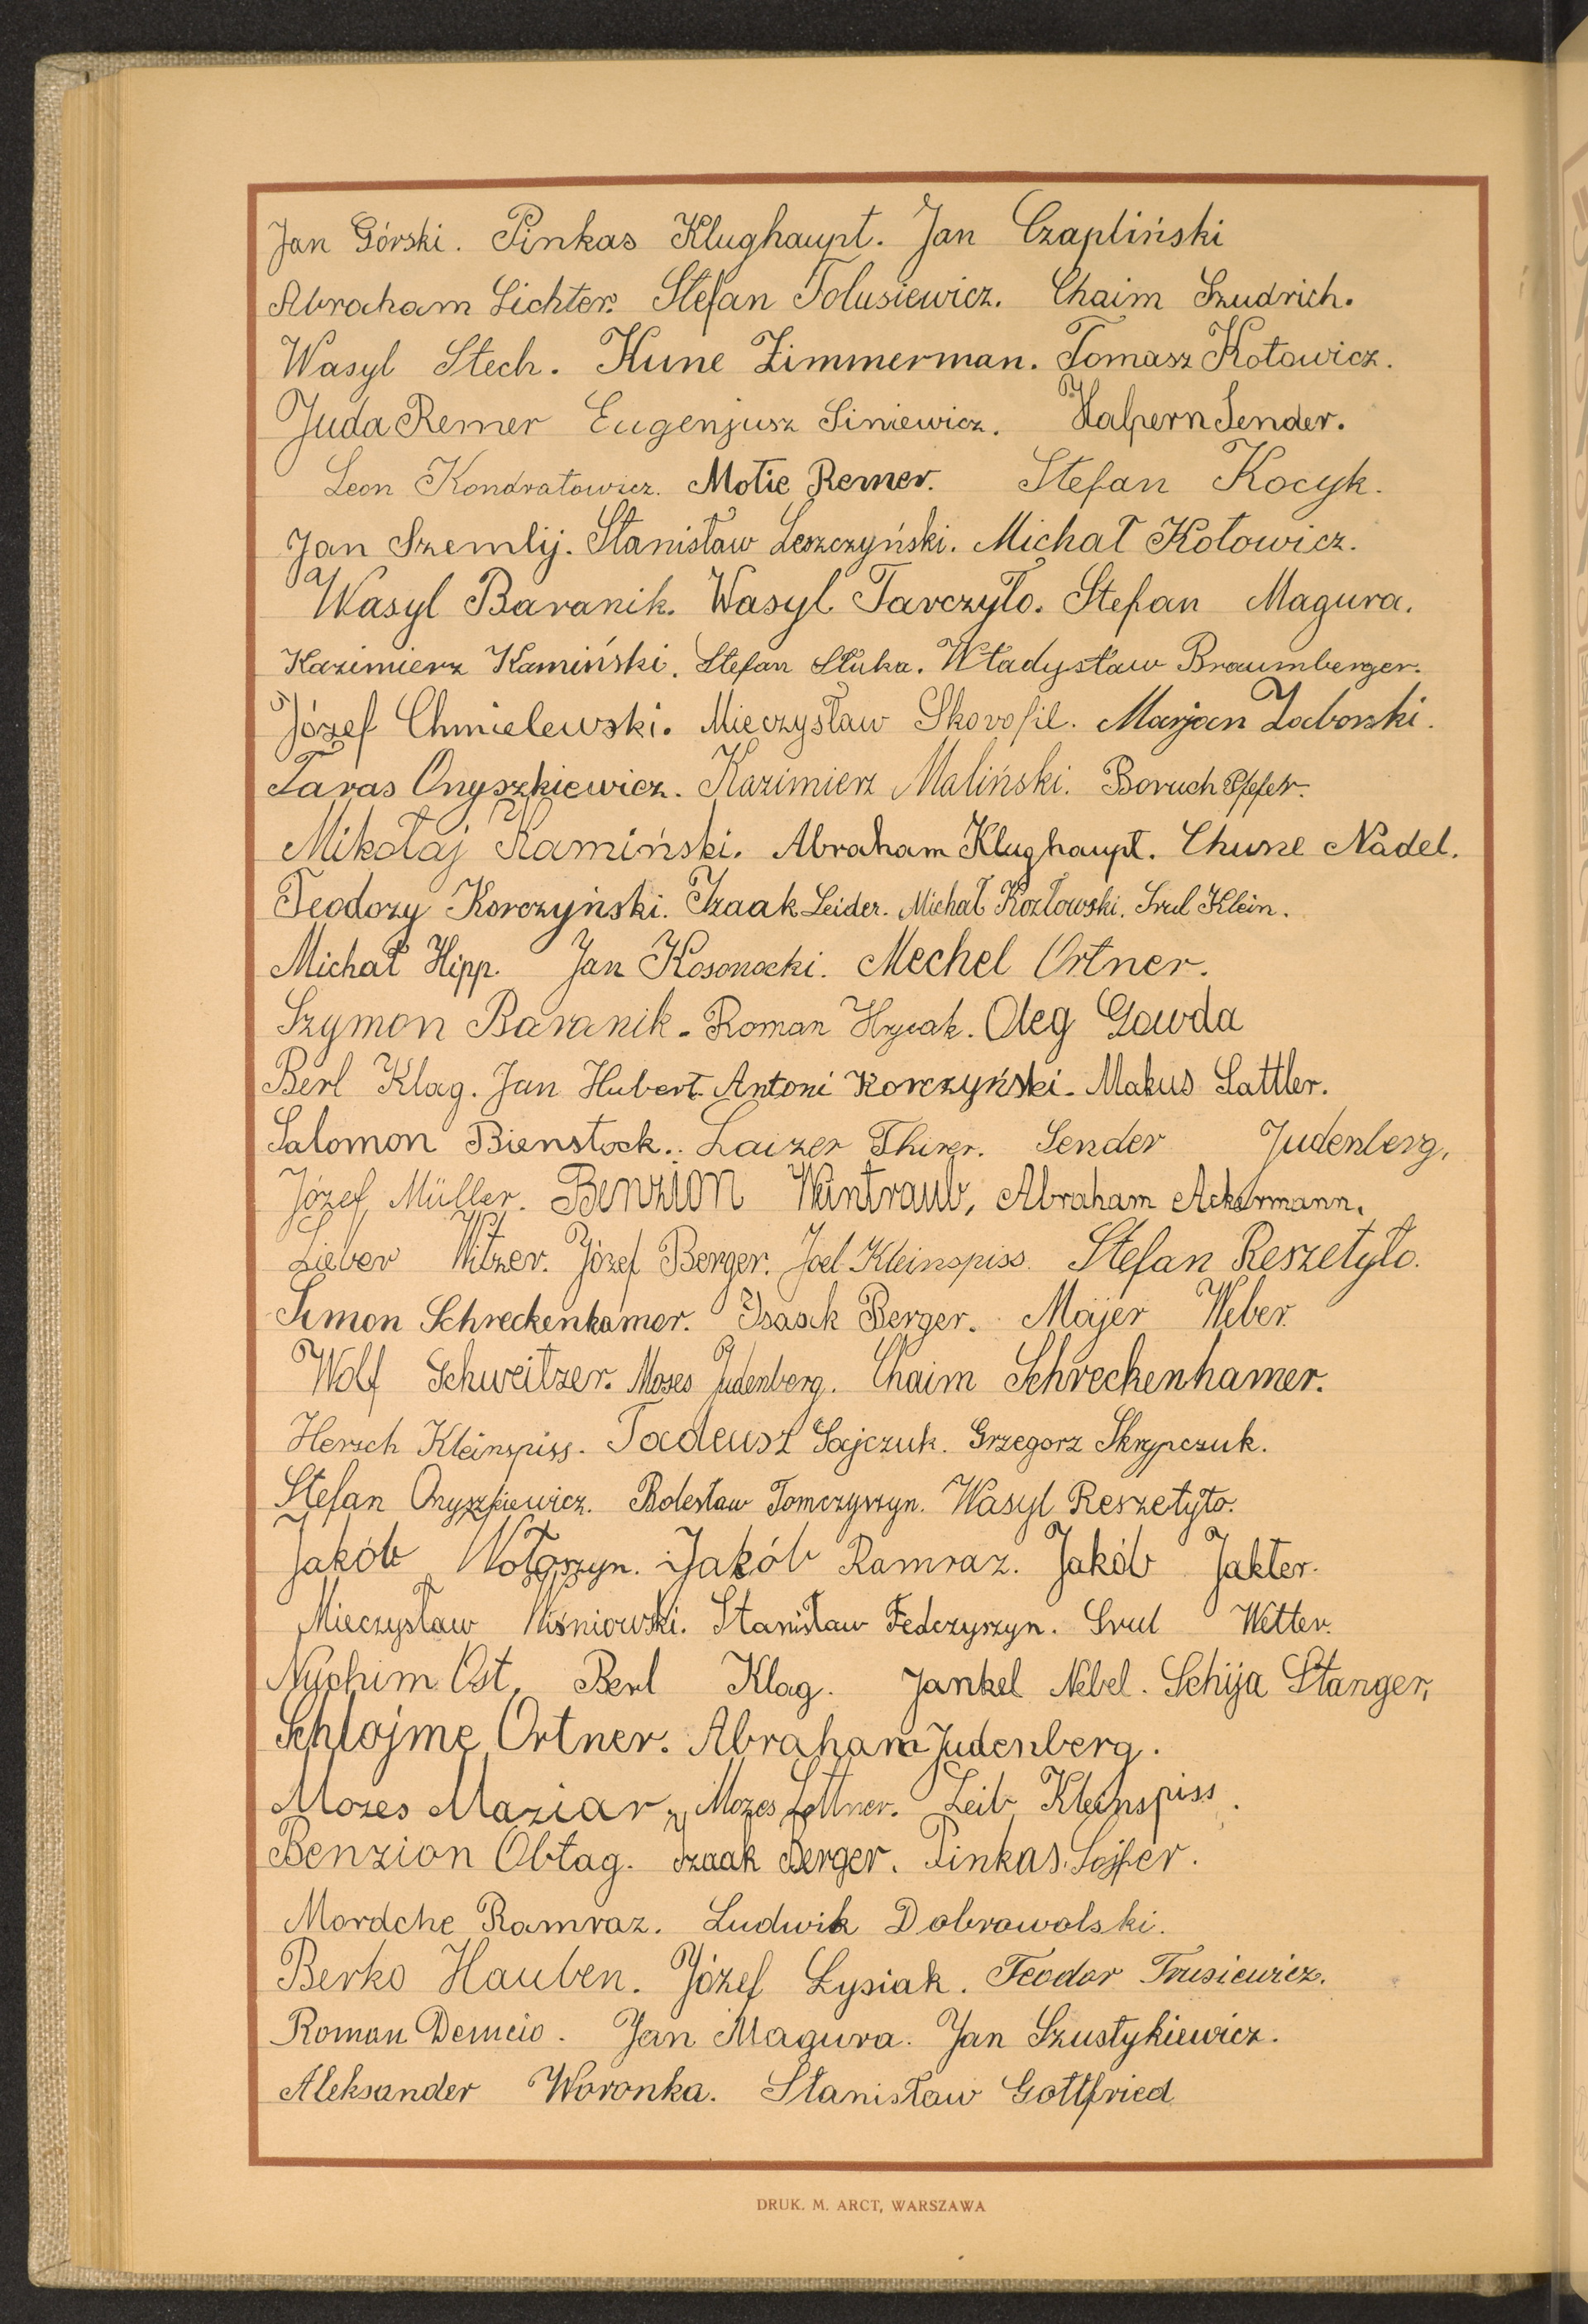 Jan Górski. Pinkas Klughaupt. Jan Czapliński
Abraham Lichter. Stefan Tolusiewicz. Chaim Szudrich.
Wasyl Stech. Kune Zimmerman. Tomasz Kotowicz.
Juda Remer Eugenjusz Siniewicz. Halpern Sender.
Leon Kondratowicz. Motie Remer. Stefan Kocyk.
Jan Szemlij. Stanisław Leszczyński. Michał Kotowicz.
Wasyl Baranik. Wasyl Tarczyło. Stefan Magura.
Kazimierz Kamiński. Stefan Słuka. Władysław Braumberger.
Józef Chmielewski. Mieczysław Skorofil. Marjan Zaborski.
Taras Onyszkiewicz. Kazimierz Maliński. Boruch Pfefer.
Mikołaj Kamiński. Abraham Klughaupt. Chune Nadel.
Teodozy Korczyński. Izaak Leider. Michał Kozłowski. Srul Klein.
Michał Hipp. Jan Kosonocki. Mechel Ortner.
Szymon Baranik. Roman Hrycak. Oleg Gowda
Berl Klag. Jan Hubert. Antoni Korczyński. Makus Sattler.
Salomon Bienstock. Laizer Thirer. Sender Judenberg.
Józef Müller. Benzion Weintraub, Abraham Ackermann.
Lieber Witzer. Józef Berger. Joel Kleinspiss. Stefan Reszetyło.
Simon Schreckenhamer. Isaak Berger. Majer Weber.
Wolf Schweitzer. Moses Judenberg. Chaim Schreckenhamer.
Hersch Kleinspiss. Tadeusz Sajczuk. Grzegorz Skrypczuk.
Stefan Onyszkiewicz. Bolesław Tomczyszyn. Wasyl Reszetyło.
Jakób Wołoszyn. Jakób Ramraz. Jakób Jakter.
Mieczysław Wiśniowski. Stanisław Fedczyszyn. Srul Wetter.
Nuchim Ost, Berl Klag. Jankel Nebel. Schija Stanger,
Schlojme Ortner. Abraham Judenberg.
Mozes Maziar, Mozes Leib Kleinspiss.
Benzion Obłag. Izaak Berger. Pinkas
Mordche Ramraz. Ludwik Dobrowolski.
Berko Hauben. Józef Łysiak. Teodor Trusiewicz.
Roman Demcio. Jan Magura. Jan Szustykiewicz.
Aleksander Woronka. Stanisław Gottfried
DRUK. M. ARCT, WARSZAWA